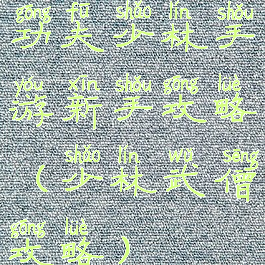 gōng fū shào lín shǒu
功夫少林手
yóu xīn shǒu gōng lüè
游新手攻略
shào lín wǔ sēng
（少林武僧
gōng lüè
攻略）